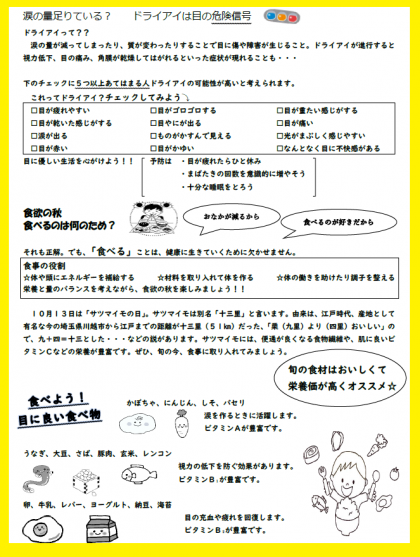 涙の量足りている？　ドライアイは目の危険信号
ドライアイって？？
涙の量が減ってしまったり、質が変わったりすることで目に傷や障害が生じること。ドライアイが進行すると
視力低下、目の痛み、角膜が乾燥してはがれるといった症状が現れることも・・・
下のチェックに５つ以上あてはまる人ドライアイの可能性が高いと考えられます。
これってドライアイ？チェックしてみよう
□目が疲れやすい　□目がゴロゴロする　□目が重たい感じがする
□目が乾いた感じがする　□目やにが出る　□目が痛い
□涙が出る　□ものがかすんで見える　□光がまぶしく感じやすい
□目が赤い　□目がかゆい　□なんとなく目に不快感がある
目に優しい生活を心がけよう！！　予防は　・目が疲れたらひと休み
・まばたきの回数を意識的に増やそう
・十分な睡眠をとろう
食欲の秋
食べるのは何のため？
おなかが減るから
食べるのが好きだから
それも正解。でも、「食べる」ことは、健康に生きていくために欠かせません。
食事の役割
☆体や頭にエネルギーを補給する　☆材料を取り入れて体を作る　☆体の働きを助けたり調子を整える
栄養と量のバランスを考えながら、食欲の秋を楽しみましょう！！
１０月１３日は「サツマイモの日」。サツマイモは別名「十三里」と言います。由来は、江戸時代、産地として
有名な今の埼玉県川越市から江戸までの距離が十三里（５１㎞）だった、「栗（九里）より（四里）おいしい」の
で、九＋四＝十三とした・・・などの説があります。サツマイモには、便通が良くなる食物繊維や、肌に良いビ
タミンＣなどの栄養が豊富です。ぜひ、旬の今、食事に取り入れてみましょう。
旬の食材はおいしくて
栄養価が高くオススメ☆
食べよう！
目に良い食べ物
かぼちゃ、にんじん、しそ、パセリ
涙を作るときに活躍します。
ビタミンＡが豊富です。
うなぎ、大豆、さば、豚肉、玄米、レンコン
視力の低下を防ぐ効果があります。
ビタミンＢ₁が豊富です。
卵、牛乳、レバー、ヨーグルト、納豆、海苔
目の充血や疲れを回復します。
ビタミンＢ₂が豊富です。